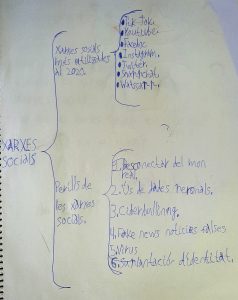 XARXES
SOCIALS
Xarxes socials
més utilitzades
al 2020.
•Tik-Tok.
•Youtube.
•Facebook.
•Instagram.
•Twitter.
•Snapchat.
Perills de
les xarxes
socials.
1.Desconectar del mon
real.
2.Ús de dades personals.
3.Ciberbullying.
4.Fake news noticies falses
5.Virus
6.Suplantació d'identitat.